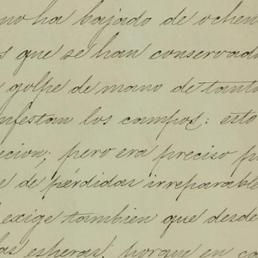 no ha bajado de ochen
s que se han conservad
golpe de mano de tant
nfestan los campos: esto
cion; pero era preciso p
e de pérdidas irreparable
exige tambien que desde
las esperas, porque en ca